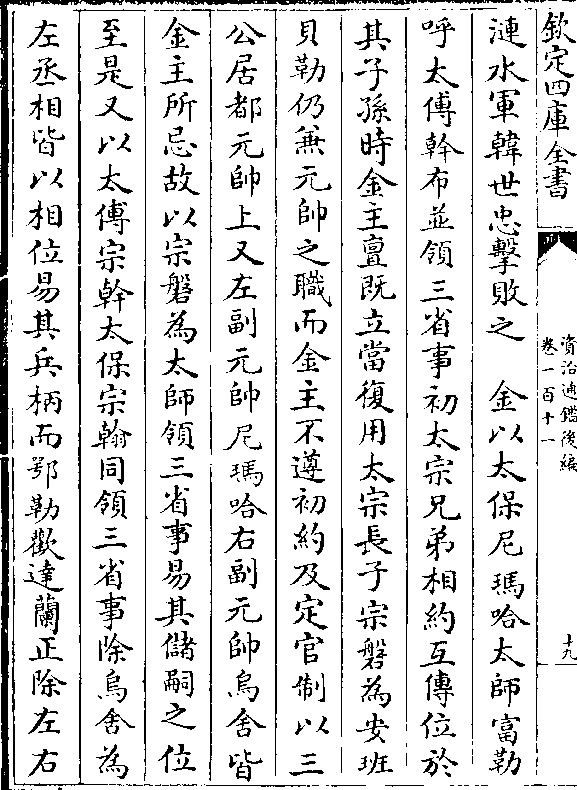 欽定四庫全書
資治通鑑後編
卷一百十一
十九
漣水軍韓世忠擊敗之　金以太保尼瑪哈太師富勒
呼太傅斡布並領三省事初太宗兄弟相約互傳位於
其子孫時金主亶既立當復用太宗長子宗磐為安班
貝勒仍兼元帥之職而金主不遵初約及定官制以三
公居都元帥上又左副元帥尼瑪哈右副元帥烏舍皆
金主所忌故以宗磐為太師領三省事易其儲嗣之位
至是又以太傅宗幹太保宗翰同領三省事除烏舍為
左丞相皆以相位易其兵柄而鄂勒歡達蘭正除左右